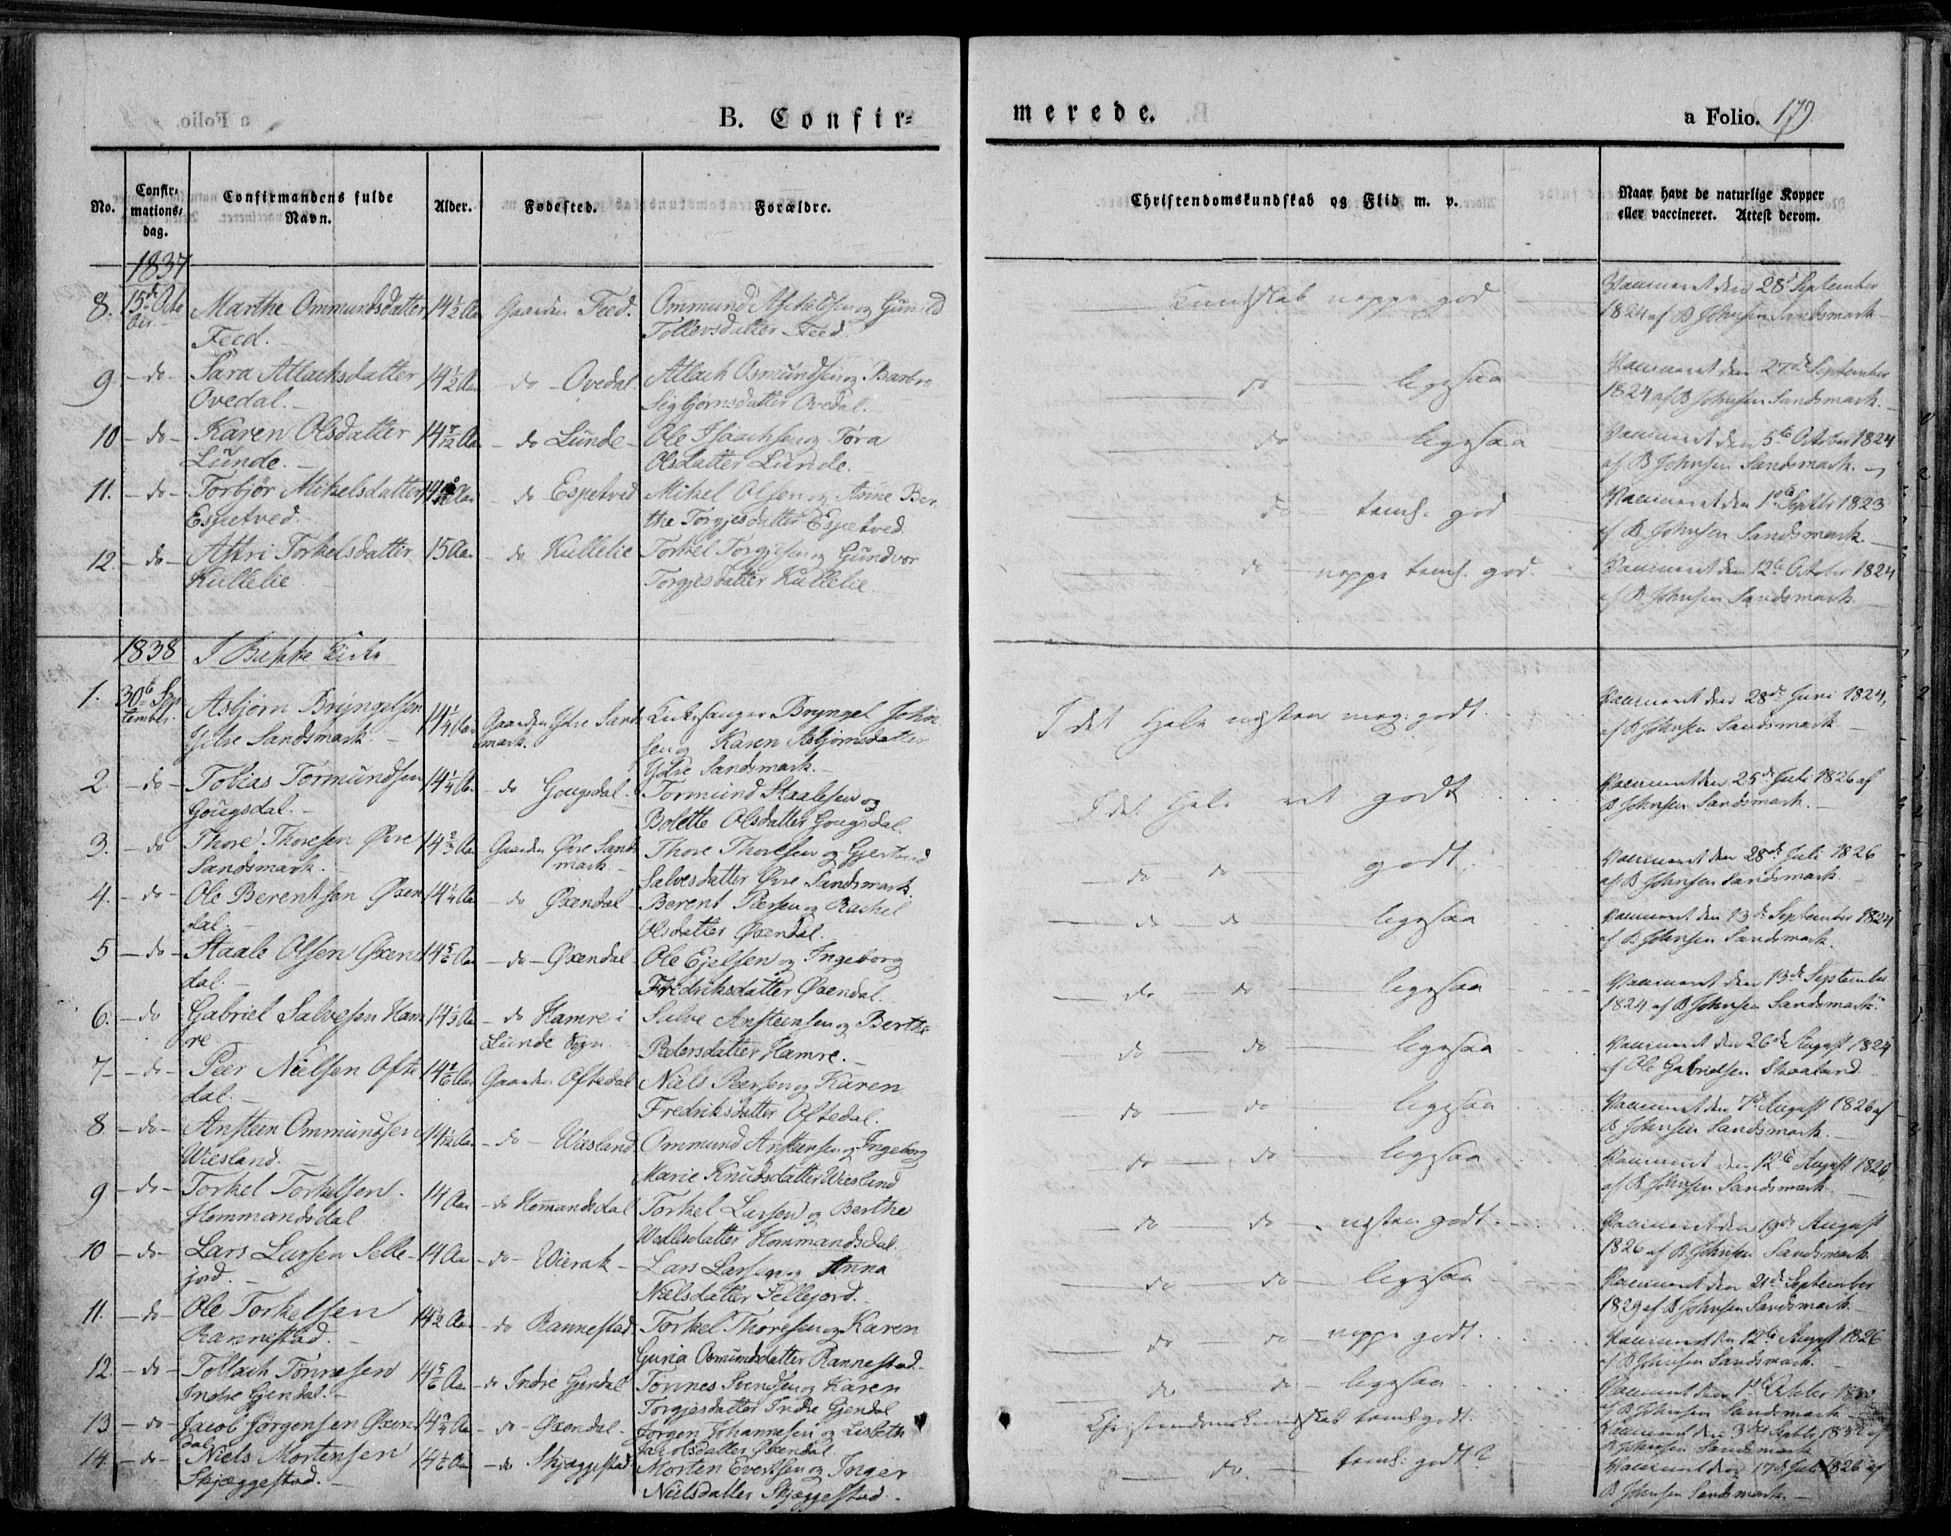 B. Confir=
merede.
a Folio. 179
No.
Confir=
mations=
dag.
Confirmandens fulde
Navn.
Alder.
Fødested.
Forældre.
Christendomskundskab og Flid m. v.
Naar havt de naturlige Kopper
eller vaccineret. Attest derom.
1837
8. 15de Marthe Ommundsdatter 14½ Aar Gaarden Feed. Ommund Gunild
Feed. Tollevsdatter Feed.
god
Vaccineret den 28de September
1824 af B Johnsen Sandsmark
9 - do - Sara Atlachsdatter 14½ Aar do - Ovedal Atlach Osmundsen og Barbro
Ovedal. - Sigbjørnsdatter Ovedal.
do - ligesaa
Vaccineret den 27de September
1824 af B Johnsen Sandsmark.
10 - do - Karen Olsdatter 14 Aar - do Lunde - Ole Isaachsen og Tora
Lunde. - Olsdatter Lunde. -
do - ligesaa
Vaccineret den 5te October 1824
af B Johnsen Sandsmark. -
11. - do - Torbjør Mikelsdatter Aar do Espetved Mikel Olsen og Anne Ber
Espetved. the Torgjesdatter Espetved.
do - god
Vaccineret den 1ste Septbr 1823
af B. Johnsen Sandsmark. -
12. - do - Astri Torkelsdatter 15 Aar - do Kullelie Torkel Torgjesen og Gundvor
Kullelie Torgjesdatter Kullelie.
do - god.
Vaccineret den 12te October 1824
af B Johnsen Sandsmark.
1838 I Bakke Kirke
1. 30te Sep
tember. Asbjørn Bryngelsen 14¼ Aar Gaarden Ydre Sands Kirkesanger Bryngel John
Ydre Sandsmark. - mark. sen og Karen Asbjørnsdatter
Ydre Sandsmark. -
I det Hele næsten meg. godt.
Vaccineret den 28de Juni 1824,
af B Johnsen Sandsmark -
2. - do - Tobias Tormundsen 14¼ Aar do Gougsdal - Tormund Staalesen og
Gougsdal. - Bolette Olsdatter Gougsdal.
I det Hele ret godt
Vaccineret den 25de Juli 1826 af
B Johnsen Sandsmark. -
3. - do Thore Thoresen Øvre 14⅔ Aar Gaarden Øvre Sands Thore Thoresen og Gjertrud
Sandsmark. - mark - Salvesdatter Øvre Sandsmark
do do godt.
Vaccineret den 28de Juli 1826
af B Johnsen Sandsmark.
4. - do - Ole Berentsen Øxen 14¼ Aar - do Øxendal Berent Peersen og Rachel
dal. - Olsdatter Øxendal.
do do ligesaa
Vaccineret den 13de September 1824
af B Johnsen Sandsmark.
5 - do - Staale Olsen Øxen 14 Aar - do - Øxendal Ole Ejelsen og Ingeborg
dal. - Fredriksdatter Øxendal.
do do ligesaa
Vaccineret den 13de September
1824 af B Johnsen Sandsmark.
6. - do Gabriel Salvesen Ham 14⅓ Aar - do Hamre i Salve Ansteensen og Berthe
re. Lunde Sogn. Pedersdatter Hamre. -
do do ligesaa
Vaccineret den 26de August 1824
af Ole Gabrielsen Skaaland
7 - do - Peer Nielsen Ofte 14 Aar Gaarden Oftedal Niels Peersen og Karen
dal. - Fredriksdatter Oftedal.
do do ligesaa
Vaccineret den 7de August 1826 af
B Johnsen Sandsmark. -
8 - do - Ansteen Ommundsen 14 Aar - do - Wiesland Ommund Ansteensen og Ingeborg
Wiesland. - Marie Knudsdatter Wiesland
do do ligesaa
Vaccineret den 12te August 1826,
af B Johnsen Sandsmark. -
9 - do - Torkel Torkelsen 14 Aar - do Hommandsdal Torkel Larsen og Berthe
Hommandsdal datter Hommandsdal.
do do næsten godt.
Vaccineret den 19de August
1826 af B Johnsen Sandsmark
10 - do - Lars Larsen Selle- 14 Aar - do - Wierak - Lars Larsen og Anna
jord. - Nielsdatter Sellejord. -
do do ligesaa
Vaccineret den 21de September
1829 af B Johnsen Sandsmark -
11. - do - Ole Torkelsen 14½ Aar - do Rannestad Torkel Thoresen og Karen
Rannestad. - Guria Osmundsdatter Rannestad.
do do godt.
Vaccineret den 12te August 1826
af B Johnsen Sandsmark. -
12. - do - Tollach Tønnesen 14 Aar - do Indre Gjendal Tønnes Svendsen og Karen
Indre Gjendal. - Torgjesdatter Indre Gjendal
do do ligesaa
Vaccineret den
af B Johnsen Sandsmark -
13 - do - Jacob Jørgensen Øxen 14 Aar - do - Øxendal - Jørgen Johannesen og Lisbeth
dal Jacobsdatter Øxendal
Christendomskundskab temel. godt.
Vaccineret den
B Johnsen Sandsmark
14. - do - Niels Mortensen 14 Aar - do Skjæggestad Morten Evertsen og Inger
Skjæggestad. - Nielsdatter Skjæggestad. -
do. temel. godt
Vaccineret den 17de Juli 1826 af
B Johnsen Sandsmark. -